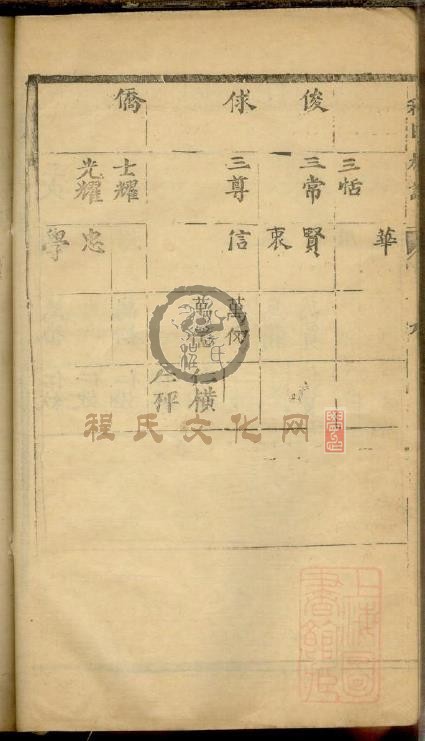 俊
俅
僑
三恬
三常
三尊
士耀
光耀
華
賢
衷
信
忠
學
萬
仁橫
仁秤
程氏文化网
上海圖書館